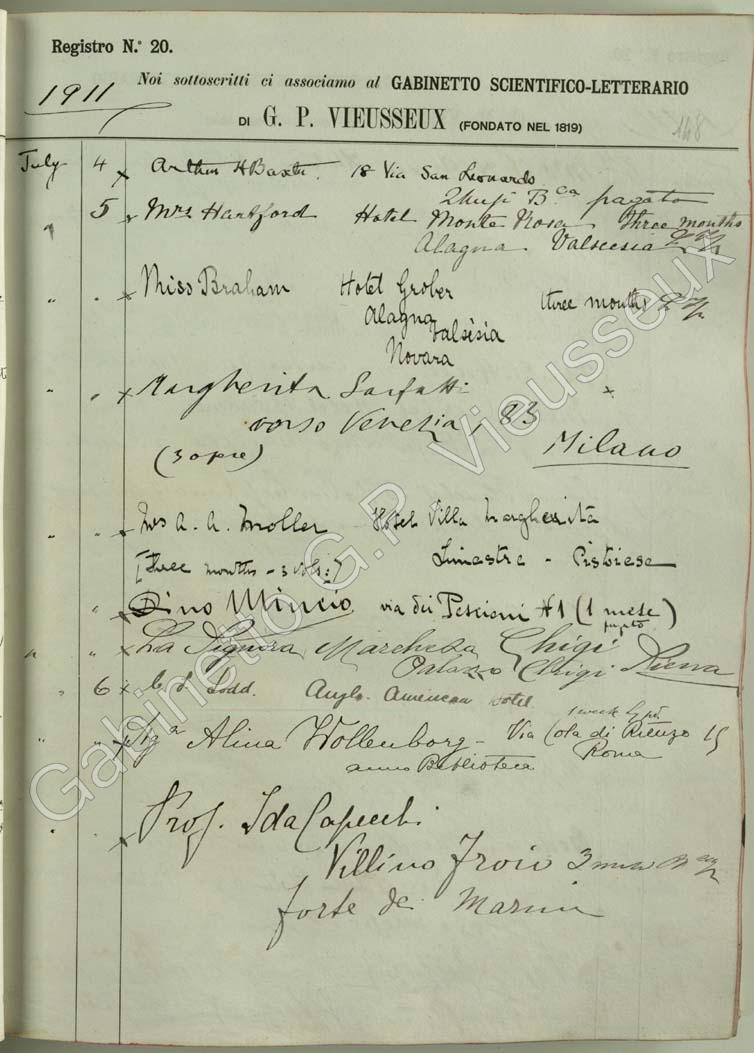 Registro N.° 20.
Noi sottoscritti ci associamo al GABINETTO SCIENTIFICO-LETTERARIO
1911
DI G. P. VIEUSSEUX (FONDATO NEL 1819)
148
July 4 x Arthur H Baxter. 18 Via San Leonardo
B.ca pagato
" 5 x Mrs Hartford Hotel Monte Rosa three months
Alagna. Valsesia
" " x Miss Braham Hotel Grober three months
Alagna
Valsesia
Novara
" " x Margherita Sarfatti "
corso Venezia, 83
(3 opere) Milano
" " x Mrs A. A. Moller Hotel Villa Margherita
[three months - 3 vols:] Pistoiese
" x Dino Mincio via dei Pescioni N 1 (1 mese)
" " x La Signora Marchesa Chigi
Palazzo Chigi Siena
" 6 x Anglo-American Hotel
1 week
" " x Sig.a Alina Wollenborg - Via Cola di Rienzo 15
anno Biblioteca Roma
" " x Prof. Ida Capecchi
Villino 3
forte dei Marmi
Gabinetto G.P. Vieusseux